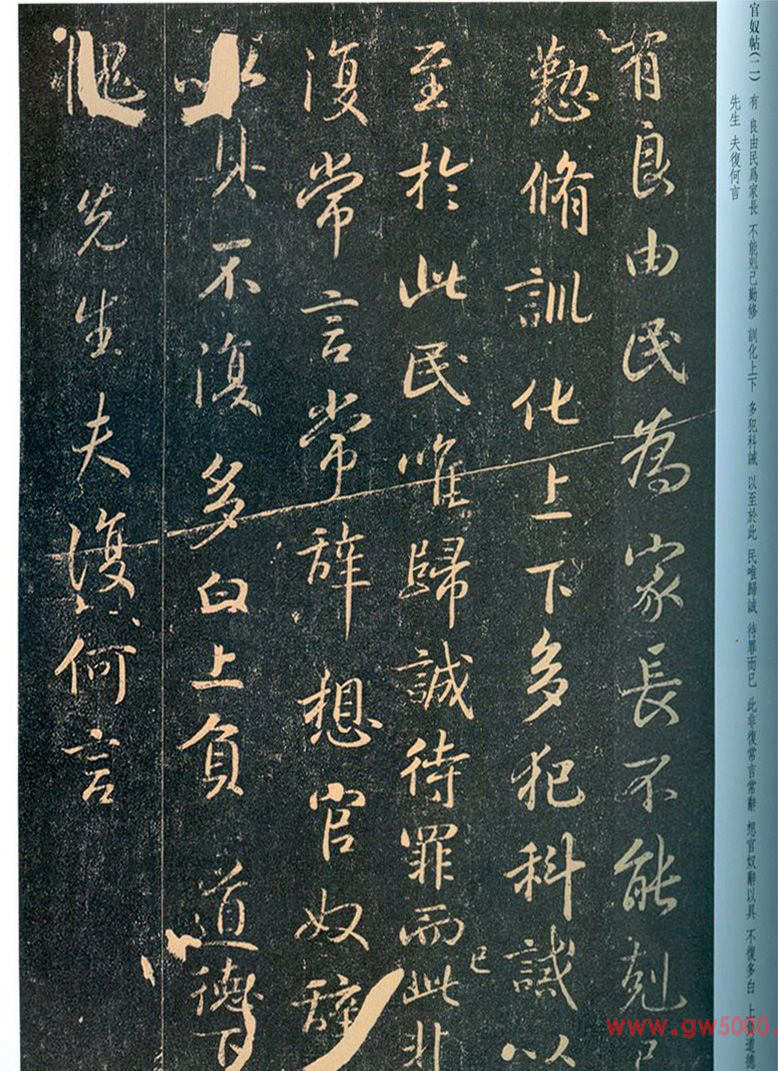 官奴帖(二) 有 良由民爲家長 不能剋己勤修 訓化上下 多犯科誡 以至於此 民唯歸誠 待罪而已 此非復常言常辭 想官奴辭以具 不復多白 上 道德
先生 夫復何言
有良由民為家長不能剋己
懃脩訓化上下多犯科誡以
至於此民唯歸誠待罪而已此非
復常言常辞想官奴辭
以具不復多白上負道德下
愧先生夫復何言
www.gw5000.